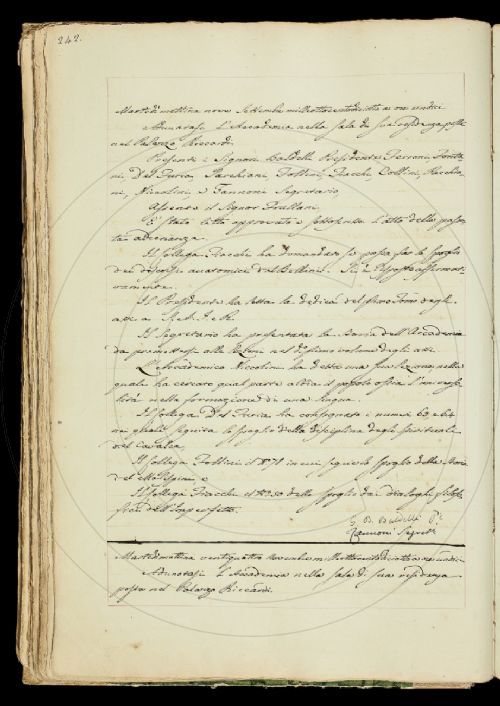 242.
Martedì mattina nove Settembre milleottocentodiciotto a ore undici
Adunatasi L'Accademia nella sala di sua residenza posta
nel Palazzo Riccardi.
Presenti i Signori Baldelli Presidente, Ferroni, Fonta
ni, Del Furia, Sarchiani, Follini, Fiacchi, Collini, Bacchia
ni, Niccolini, e Zannoni Segretario
Assente il Signor Frullani.
È stato letto approvato e sottoscritto l'atto della passa
ta adunanza.
Il Collega Fiacchi ha domandato se possa far lo spoglio
dei discorsi anatomici del Bellini. Si è risposto affermati
vamente.
Il Presidente ha letta la dedica del primo Tomo degli
atti a S. A. I. e R.
Il Segretario ha presentata la Storia dell'Accademia
da premettersi alle Lezioni nel di primo volume degli atti.
L'Accademico Niccolini ha detta una sua Lezione, nella
quale ha cercato qual parte abbia il popolo ossia l'universa
lità nella formazione di una lingua.
Il Collega Del Furia ha consegnato i numeri 63 e 64
nei quali seguita lo spoglio della disciplina degli Spirituali
del Cavalca.
Il Collega Follini il N° 71 in cui segue lo spoglio della Storia
del Malispini e
Il Collega Fiacchi il N° 50 dello spoglio dei dialoghi filoso
fici dell'Imperfetto.
G. B. Baldelli P.e
Zannoni Segret.
Martedì mattina ventiquattro Novembre Milleottocentodiciotto a ore undici
Adunatasi L'Accademia nella sala di sua residenza
posta nel Palazzo Riccardi.